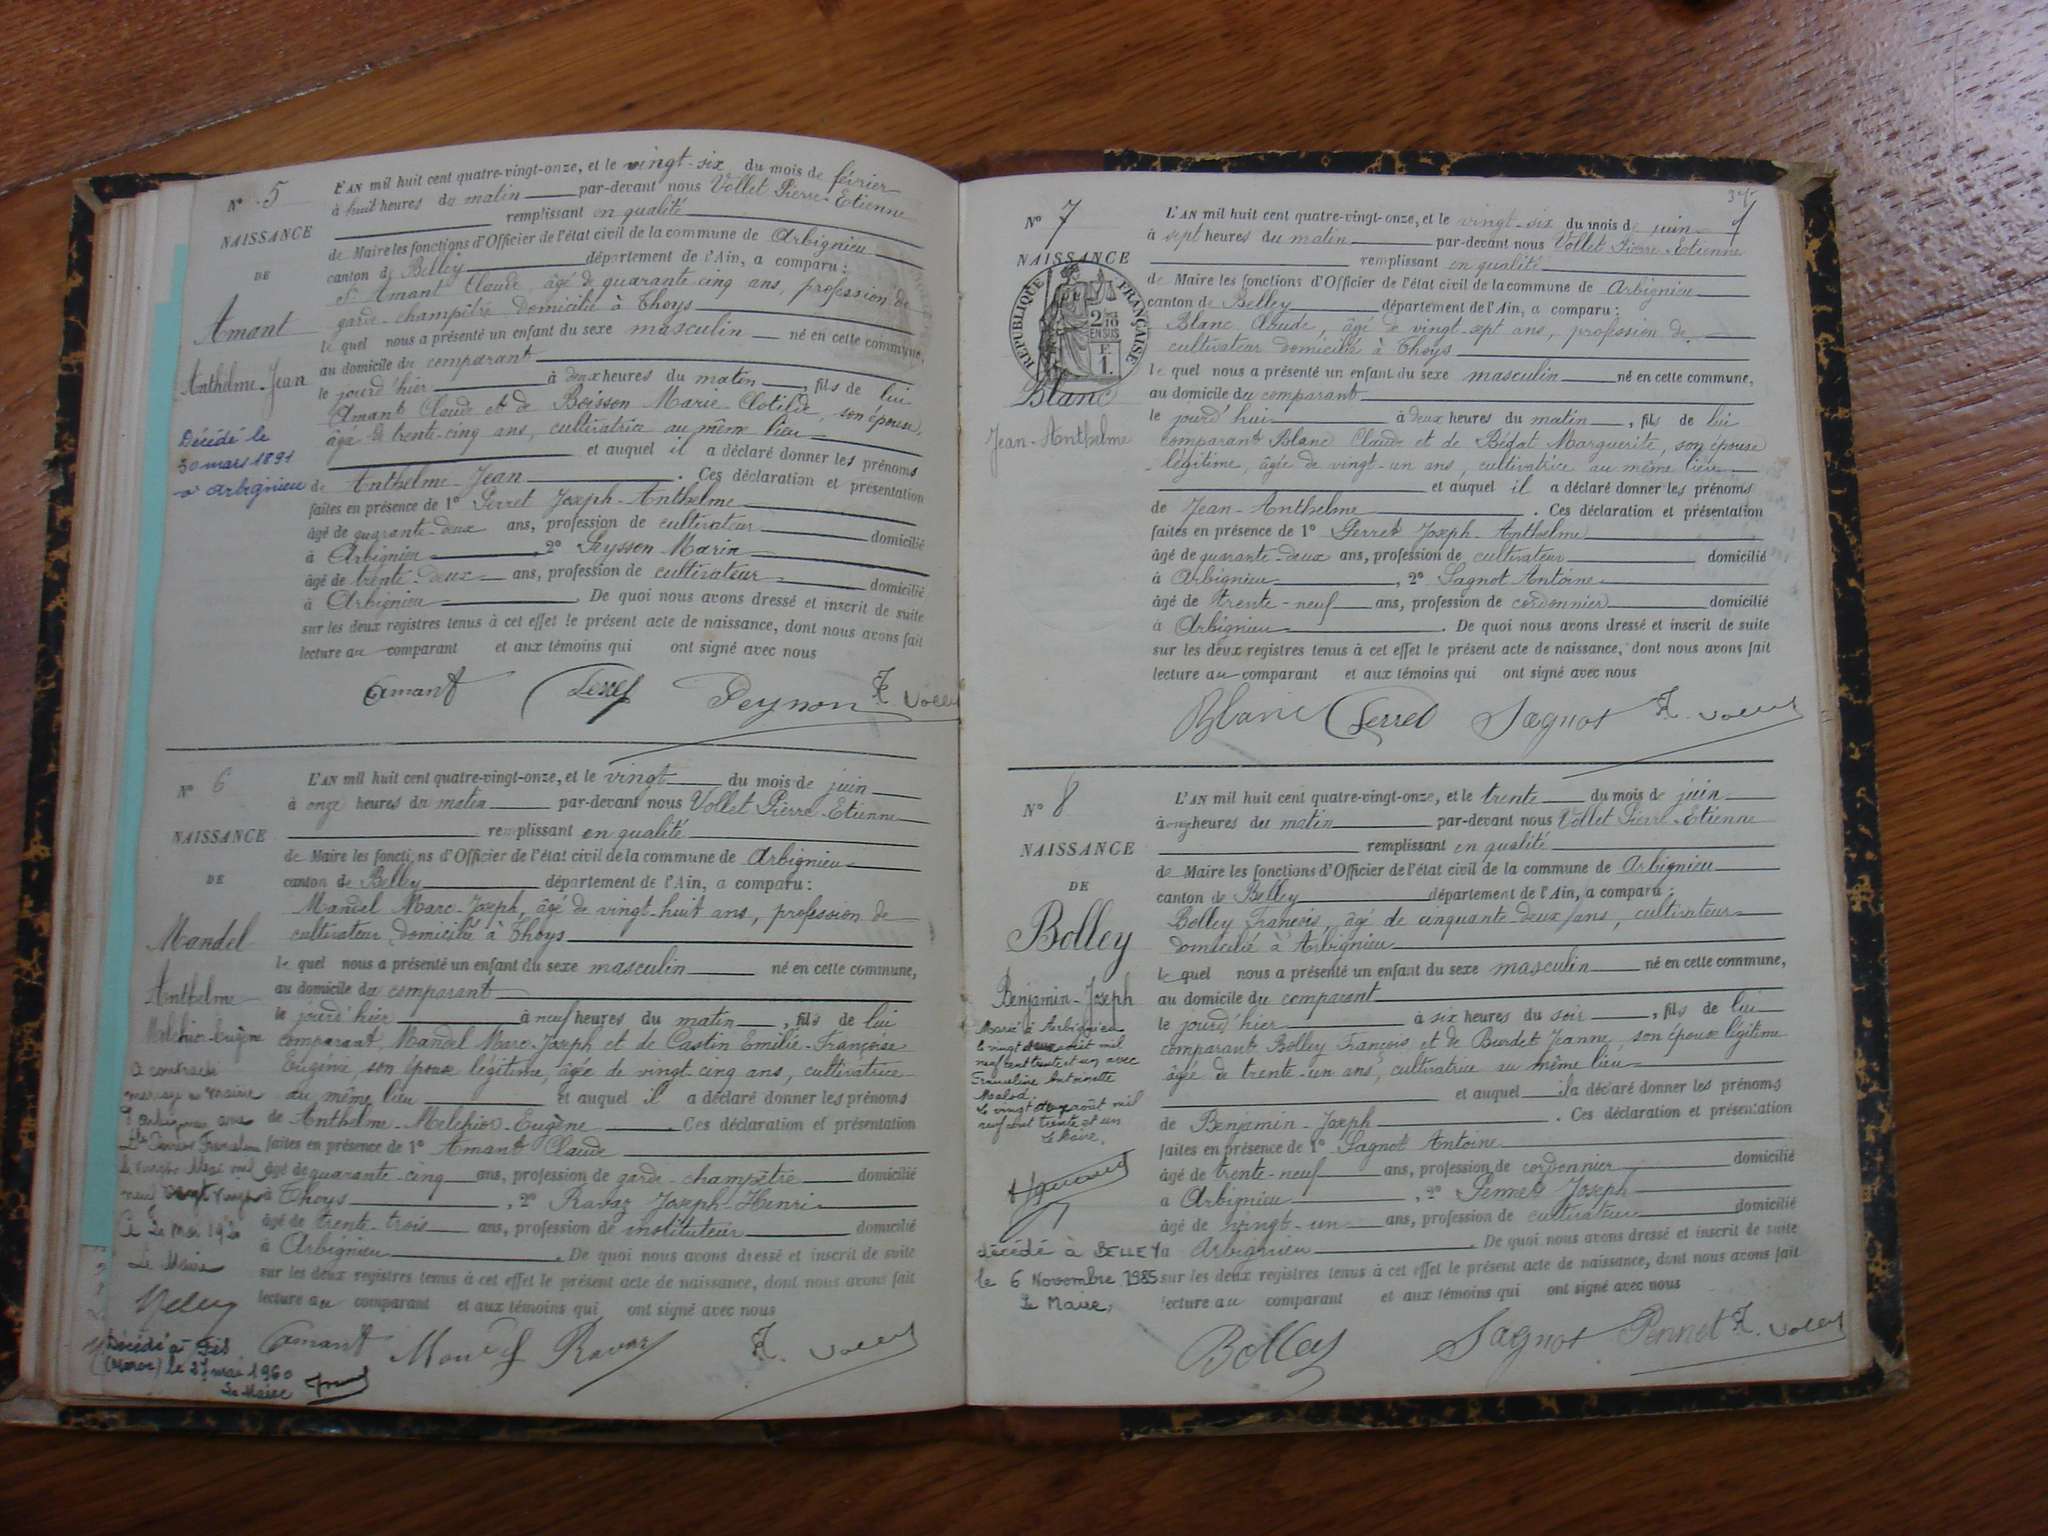 N° 5
NAISSANCE
DE
Amant
Anthelme-Jean
Décédé le
30 mars 1891
à Arbignieu
L'AN mil huit cent quatre-vingt-onze, et le vingt-six du mois de février
à huit heures du matin par-devant nous Vollet Pierre-Etienne
remplissant en qualité
de Maire les fonctions d'Officier de l'état civil de la commune de Arbignieu
canton de Belley département de l'Ain, a comparu :
Amant Claude, âgé de quarante cinq ans, profession de
garde-champêtre domicilié à Thoys
le quel nous a présenté un enfant du sexe masculin né en cette commune,
au domicile du comparant
le jourd'hier à deux heures du matin, fils de lui
Amant Claude et de Boisson Marie Clotilde, son épouse,
âgée de trente-cinq ans, cultivatrice au même lieu
et auquel il a déclaré donner les prénoms
de Anthelme-Jean. Ces déclaration et présentation
faites en présence de 1° Perret Joseph-Anthelme
âgé de quarante-deux ans, profession de cultivateur domicilié
à Arbignieu, 2° Peysson Marin
âgé de trente-deux ans, profession de cultivateur domicilié
à Arbignieu. De quoi nous avons dressé et inscrit de suite
sur les deux registres tenus à cet effet le présent acte de naissance, dont nous avons fait
lecture au comparant et aux témoins qui ont signé avec nous
Amant Perret Vollet
N° 6
NAISSANCE
DE
Mandel
Anthelme
Melchior-Eugène
a contracté
mariage à
le Mai mil
neuf cent vingt
Le Maire
Décédé à Fès
(Maroc) le 27 mai 1960
Le Maire
L'AN mil huit cent quatre-vingt-onze, et le vingt du mois de juin
à onze heures du matin par-devant nous Vollet Pierre-Etienne
remplissant en qualité
de Maire les fonctions d'Officier de l'état civil de la commune de Arbignieu
canton de Belley département de l'Ain, a comparu :
Mandel Marc-Joseph, âgé de vingt-huit ans, profession de
cultivateur domicilié à Thoys
le quel nous a présenté un enfant du sexe masculin né en cette commune,
au domicile du comparant
le jourd'hier à neuf heures du matin, fils de lui
comparant, Mandel Marc-Joseph et de Castin Emilie-Françoise
Eugénie, son épouse légitime, âgée de vingt-cinq ans, cultivatrice
au même lieu et auquel il a déclaré donner les prénoms
de Anthelme-Melchior-Eugène. Ces déclaration et présentation
faites en présence de 1° Amant Claude
âgé de quarante-cinq ans, profession de garde-champêtre domicilié
à Thoys, 2° Ravaz Joseph-Henri
âgé de trente-trois ans, profession de instituteur domicilié
à Arbignieu. De quoi nous avons dressé et inscrit de suite
sur les deux registres tenus à cet effet le présent acte de naissance, dont nous avons fait
lecture au comparant et aux témoins qui ont signé avec nous
Amant Mandel Ravaz Vollet
N° 7
NAISSANCE
RÉPUBLIQUE FRANÇAISE
2/10
EN SUS
F.
1.
Blanc
Jean-Anthelme
L'AN mil huit cent quatre-vingt-onze, et le vingt-six du mois de juin
à sept heures du matin par-devant nous Vollet Pierre-Etienne
remplissant en qualité
de Maire les fonctions d'Officier de l'état civil de la commune de Arbignieu
canton de Belley département de l'Ain, a comparu :
Blanc Claude, âgé de vingt-sept ans, profession de
cultivateur domicilié à Thoys
le quel nous a présenté un enfant du sexe masculin né en cette commune,
au domicile du comparant
le jourd'hui à deux heures du matin, fils de lui
comparant Blanc Claude et de Bégat Marguerite, son épouse
légitime, âgée de vingt-un ans, cultivatrice au même lieu
et auquel il a déclaré donner les prénoms
de Jean-Anthelme. Ces déclaration et présentation
faites en présence de 1° Perret Joseph-Anthelme
âgé de quarante-deux ans, profession de cultivateur domicilié
à Arbignieu, 2° Sagnot Antoine
âgé de trente-neuf ans, profession de cordonnier domicilié
à Arbignieu. De quoi nous avons dressé et inscrit de suite
sur les deux registres tenus à cet effet le présent acte de naissance, dont nous avons fait
lecture au comparant et aux témoins qui ont signé avec nous
Blanc Perret Sagnot Vollet
N° 8
NAISSANCE
DE
Bolley
Benjamin-Joseph
Marié à Arbignieu
le vingt deux août mil
neuf cent trente et un avec
Franceline Antoinette
Le vingt deux août mil
neuf cent trente et un
Le Maire,
décédé à BELLEY
le 6 Novembre 1985
Le Maire,
L'AN mil huit cent quatre-vingt-onze, et le trente du mois de juin
à onze heures du matin par-devant nous Vollet Pierre-Etienne
remplissant en qualité
de Maire les fonctions d'Officier de l'état civil de la commune de Arbignieu
canton de Belley département de l'Ain, a comparu :
Bolley François, âgé de cinquante-deux ans, cultivateur
domicilié à Arbignieu
le quel nous a présenté un enfant du sexe masculin né en cette commune,
au domicile du comparant
le jourd'hier à six heures du soir, fils de lui
comparant Bolley François et de Burdet Jeanne, son épouse légitime
âgée de trente-un ans, cultivatrice au même lieu
et auquel il a déclaré donner les prénoms
de Benjamin-Joseph. Ces déclaration et présentation
faites en présence de 1° Sagnot Antoine
âgé de trente-neuf ans, profession de cordonnier domicilié
à Arbignieu, 2° Pennet Joseph
âgé de vingt-un ans, profession de cultivateur domicilié
à Arbignieu. De quoi nous avons dressé et inscrit de suite
sur les deux registres tenus à cet effet le présent acte de naissance, dont nous avons fait
lecture au comparant et aux témoins qui ont signé avec nous
Bolley Sagnot Pennet Vollet